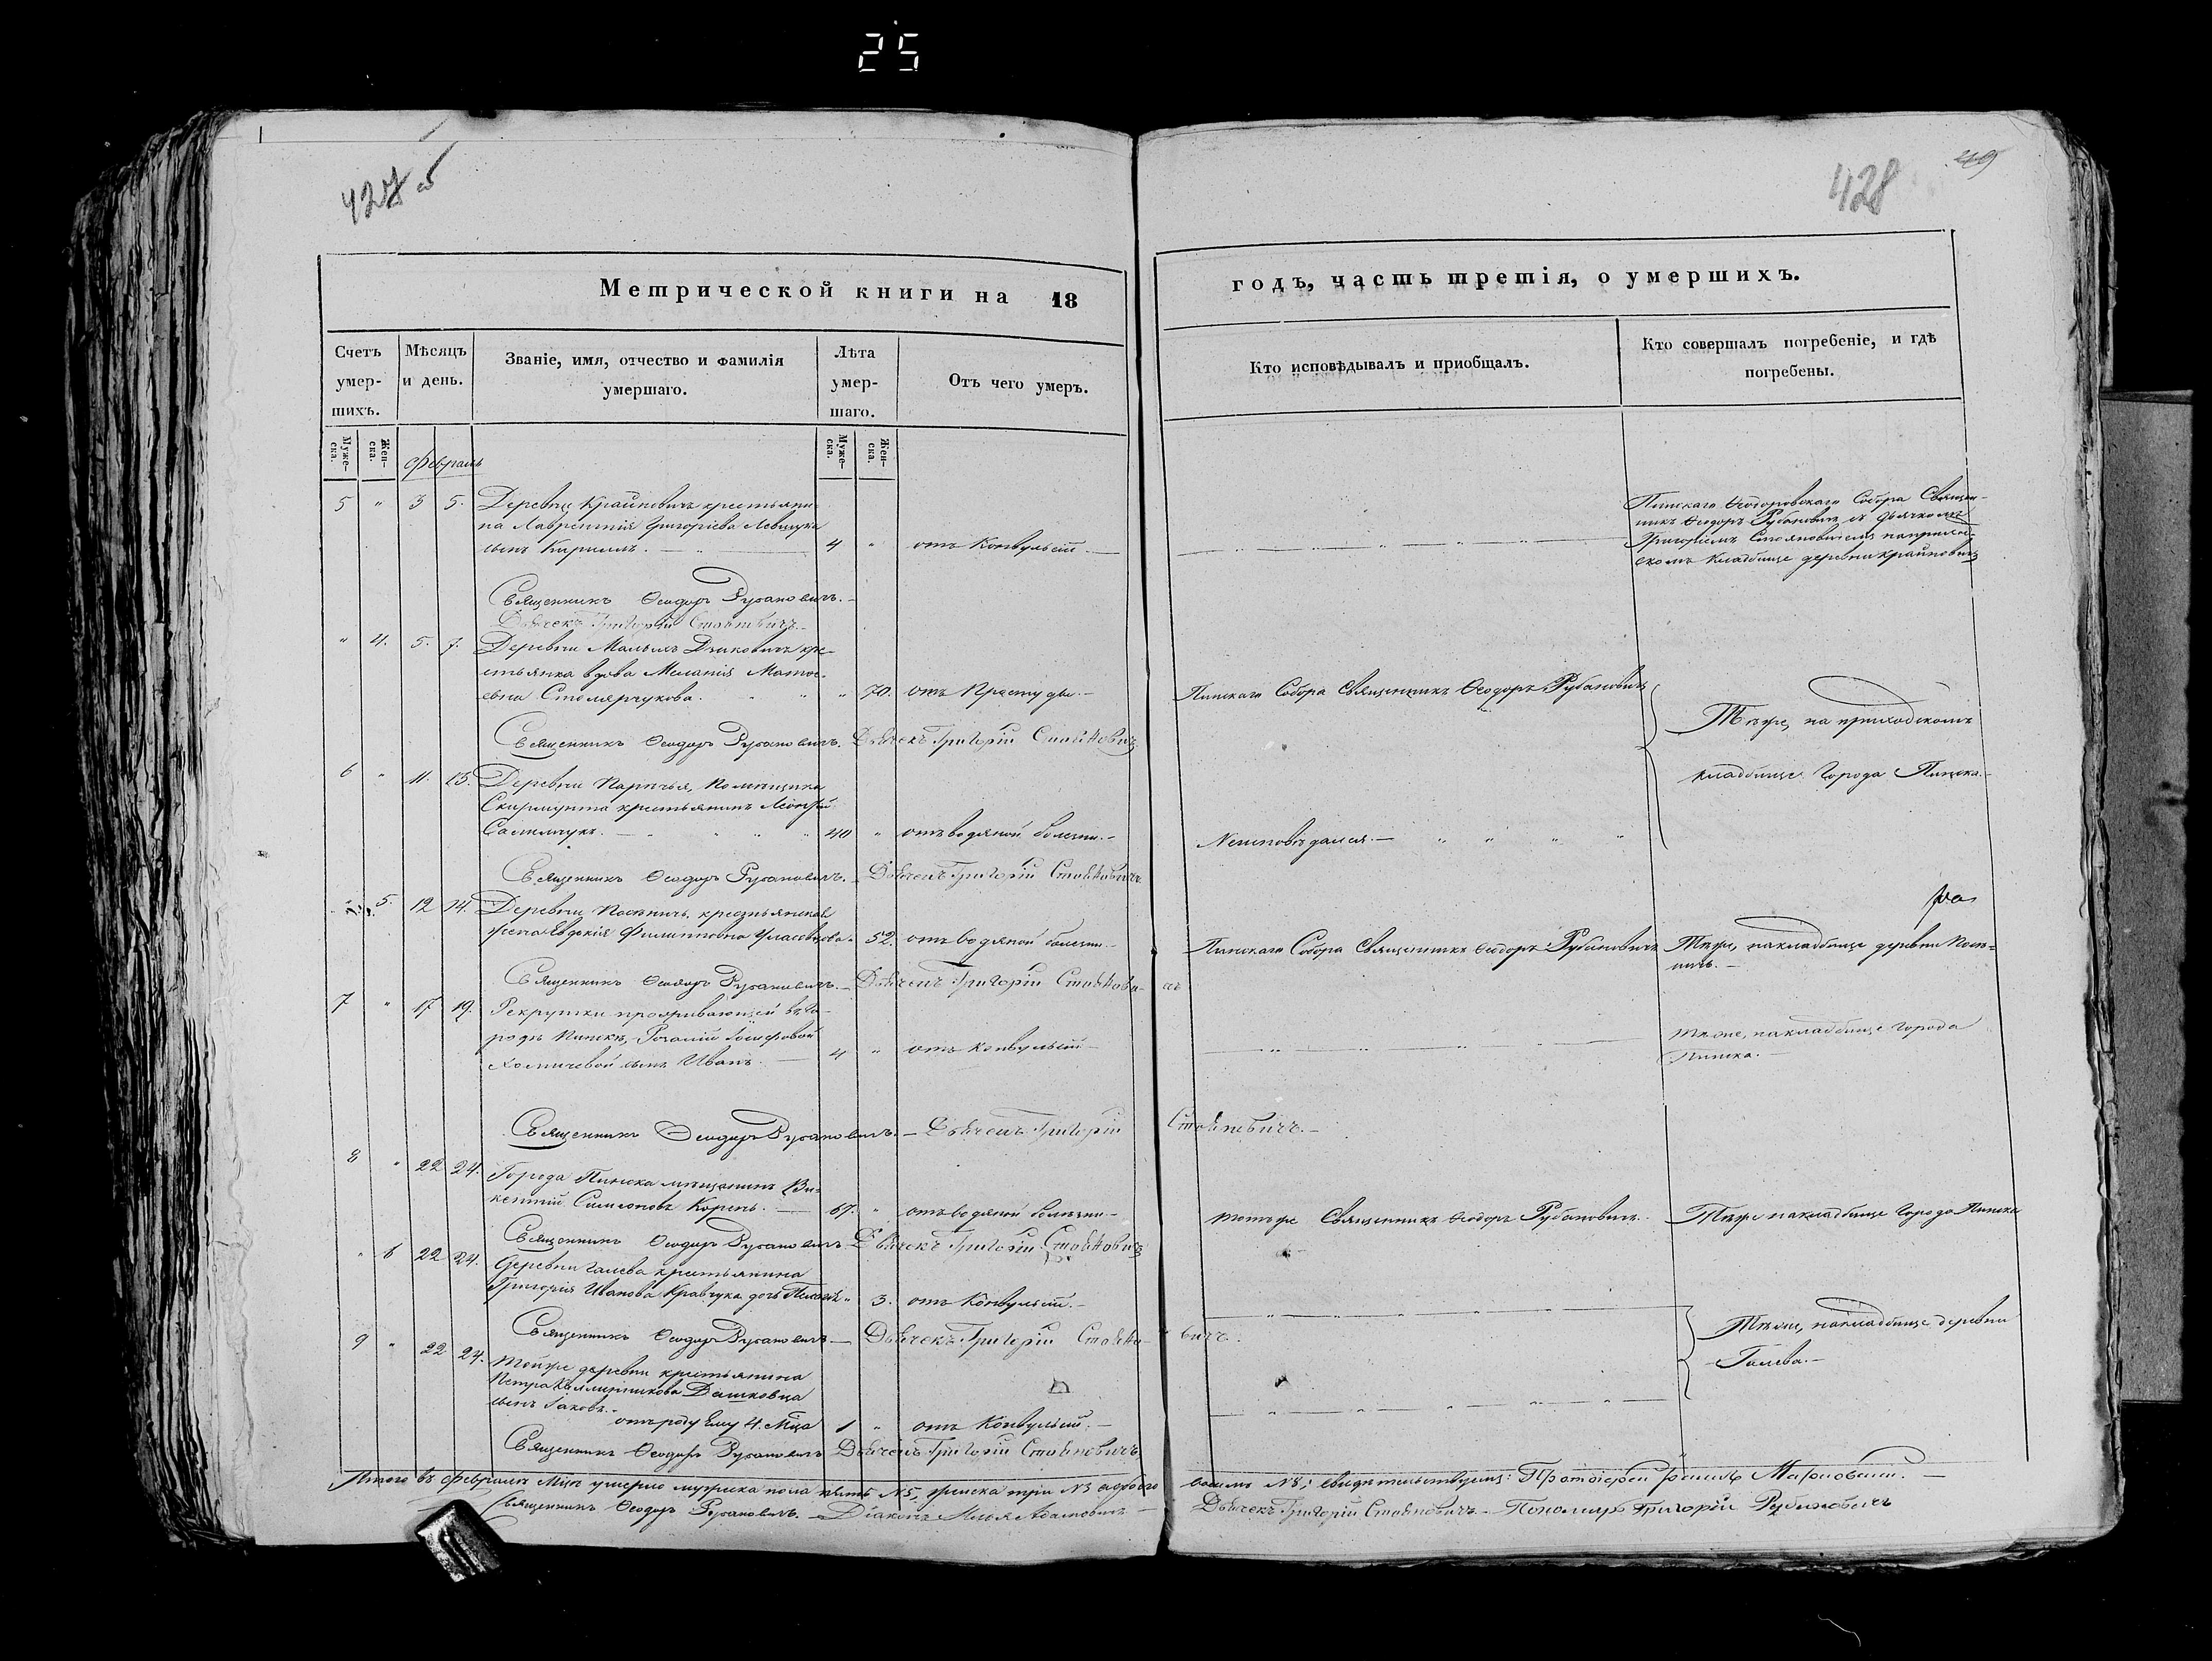 25
427 об
428
49
Метрической книги на 18
годъ, часть третія, о умершихъ.
Счетъ умер-шихъ.
Мѣсяцъ и день.
Званіе, имя, отчество и фамилія умершаго.
Лѣта умер-шаго.
Отъ чего умеръ.
Кто исповѣдывалъ и приобщалъ.
Кто совершалъ погребеніе, и гдѣ погребены.
Муже-ска.
Жен-ска.
Муже-ска.
Жен-ска.
Февраль
5 " 3 5. Деревни Крайновичъ крестьяни-
на Лаврентія Григоріева Левчука
сынъ Кириллъ. 4 " отъ Конвульсій.
Пинскаго Ѳеодоровскаго Собора Священ-
никъ Ѳеодоръ Рубановичъ съ дьячкомъ
Григоріемъ Стояновичемъ на приход-
скомъ кладбище деревни Крайновичъ
Священникъ Ѳеодоръ Рубановичъ.
Дьячекъ Григорій Стояновичъ
" 4. 5. 7. Деревни Малыхъ Диковичъ кре-
стьянка вдова Меланія Матѳе-
евна Столярчукова. " 70. отъ Простуды.
Пинскаго Собора Священникъ Ѳеодоръ Рубановичъ
Тѣже, на приходскомъ
кладбище города Пинска.
Священникъ Ѳеодоръ Рубановичъ. Дьячекъ Григорій Стояновичъ
6 " 11. 13. Деревни Парѣчья, Помѣщика
Скирмунта крестьянинъ
40 " отъ водяной болезни.
Неисповѣдался.
Священникъ Ѳеодоръ Рубановичъ. Дьячекъ Григорій Стояновичъ
" 5. 12 14. Деревни Посѣничъ крестьянская
жена Евдокія Филипповна 52. отъ водяной болезни.
Пинскаго Собора Священникъ Ѳеодоръ Рубановичъ
Тѣже, на кладбище деревни Посѣ-
ничъ.
Священникъ Ѳеодоръ Рубановичъ. Дьячекъ Григорій Стоянови-чъ
7 " 17 19. Рекрутки проживающей въ го-
родѣ Пинскѣ, Розаліи Іосифовой
Хомичевой сынъ Иванъ. 4 " отъ конвульсій
Тѣже, на кладбище города
Пинска.
Священникъ Ѳеодоръ Рубановичъ. Дьячекъ Григорій Стояновичъ.
8 " 22 24. Города Пинска мѣщанинъ Ви-
кентій Симеоновъ Корень. 67. " отъ водяной болѣзни
тотъже Священникъ Ѳеодоръ Рубановичъ.
Тѣже на кладбище города Пинска
Священникъ Ѳеодоръ Рубановичъ Дьячекъ Григорій Стояновичъ
" 6 22 24. Деревни Галева крестьянина
Григорія Иванова Кравчука дочь " 3. отъ Конвульсій.
Тѣже, на кладбище деревни
Галева.
Священникъ Ѳеодоръ Рубановичъ Дьячекъ Григорій Стояно-вичъ.
9 " 22 24. Тойже деревни крестьянина
Петра Дашковца
сынъ Іаковъ.
отъ роду ему 4. Мца 1 " отъ Конвульсій.
Священникъ Ѳеодоръ Рубановичъ Дьячекъ Григорій Стояновичъ
Итого въ Февралѣ Мцѣ умерло мужска пола пять №5, женска три №3 а обоего восемь №8; свидѣтельствуемъ: Протоіерей
Священникъ Ѳеодоръ Рубановичъ. Діаконъ Илья Адамовичъ Дьячекъ Григорій Стояновичъ. Пономарь Григорій Рубановичъ